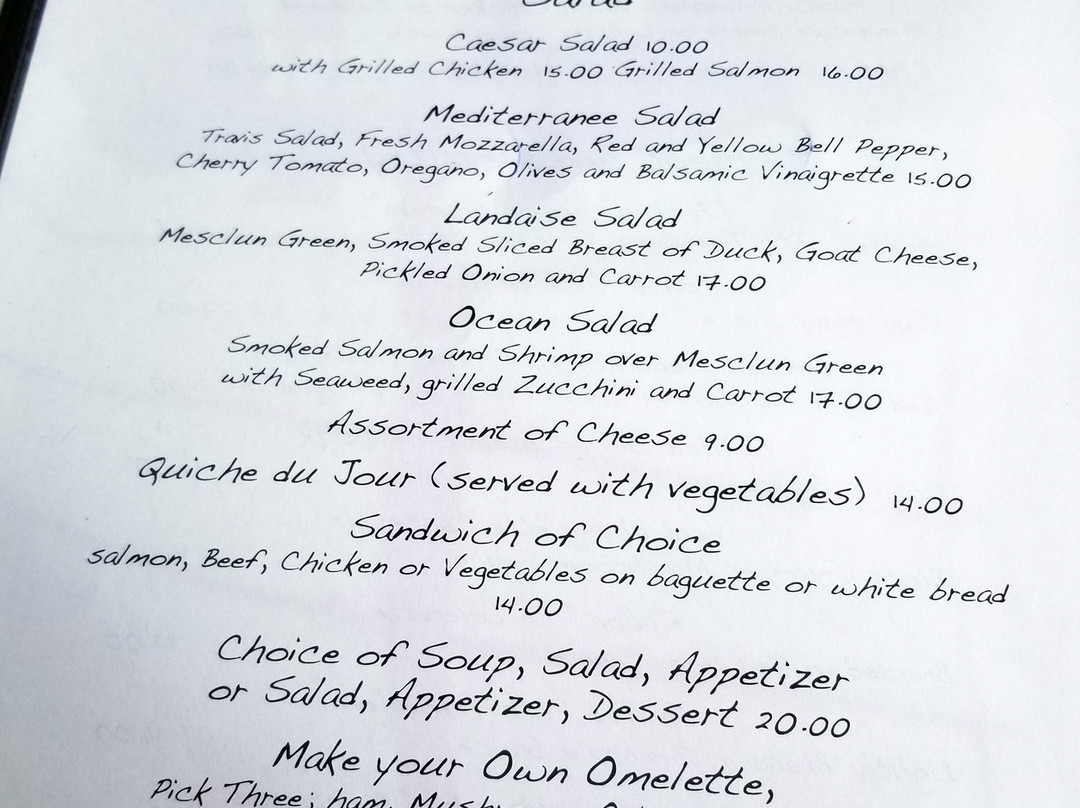 Caesar Salad 10.00
with Grilled Chicken 15.00 Grilled Salmon 16.00
Mediterranee Salad
Travis Salad, Fresh Mozzarella, Red and Yellow Bell Pepper,
Cherry Tomato, Oregano, Olives and Balsamic Vinaigrette 15.00
Landaise Salad
Mesclun Green, Smoked Sliced Breast of Duck, Goat Cheese,
Pickled Onion and Carrot 17.00
Ocean Salad
Smoked Salmon and Shrimp over Mesclun Green
with Seaweed, grilled Zucchini and Carrot 17.00
Assortment of Cheese 9.00
Quiche du Jour (served with vegetables) 14.00
Sandwich of Choice
salmon, Beef, Chicken or Vegetables on baguette or white bread
14.00
Choice of Soup, Salad, Appetizer
or Salad, Appetizer, Dessert 20.00
Make your Own Omelette,
Pick Three; ham,